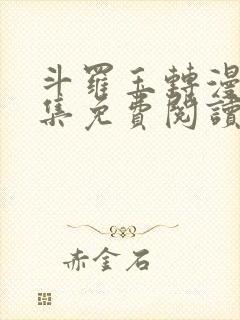 斗羅玉轉漫
集免費閱讀
赤金石